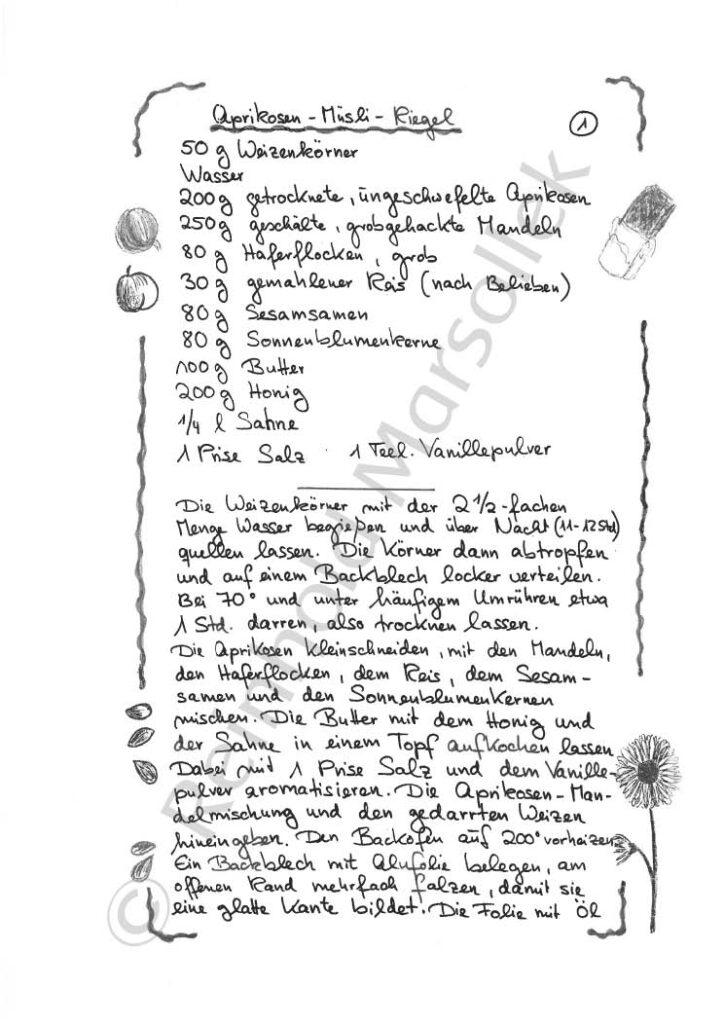 Aprikosen-Müsli-Riegel
1
50 g Weizenkörner
Wasser
200 g getrocknete, ungeschwefelte Aprikosen
250 g geschälte, grobgehackte Mandeln
80 g Haferflocken, grob
30 g gemahlener Reis (nach Belieben)
80 g Sesamsamen
80 g Sonnenblumenkerne
100 g Butter
200 g Honig
1/4 l Sahne
1 Prise Salz 1 Teel. Vanillepulver
Die Weizenkörner mit der 2 1/2-fachen
Menge Wasser begießen und über Nacht (11-12 Std)
quellen lassen. Die Körner dann abtropfen
und auf einem Backblech locker verteilen.
Bei 70° und unter häufigem Umrühren etwa
1 Std. darren, also trocknen lassen.
Die Aprikosen kleinschneiden, mit den Mandeln,
den Haferflocken, dem Reis, dem Sesam-
samen und den Sonnenblumenkernen
mischen. Die Butter mit dem Honig und
der Sahne in einem Topf aufkochen lassen
Dabei mit 1 Prise Salz und dem Vanille-
pulver aromatisieren. Die Aprikosen-Man-
delmischung und den gedarrten Weizen
hineingeben. Den Backofen auf 200° vorheizen
Ein Backblech mit Alufolie belegen, am
offenen Rand mehrfach falzen, damit sie
eine glatte Kante bildet. Die Folie mit Öl
© Reinhold Marsollek